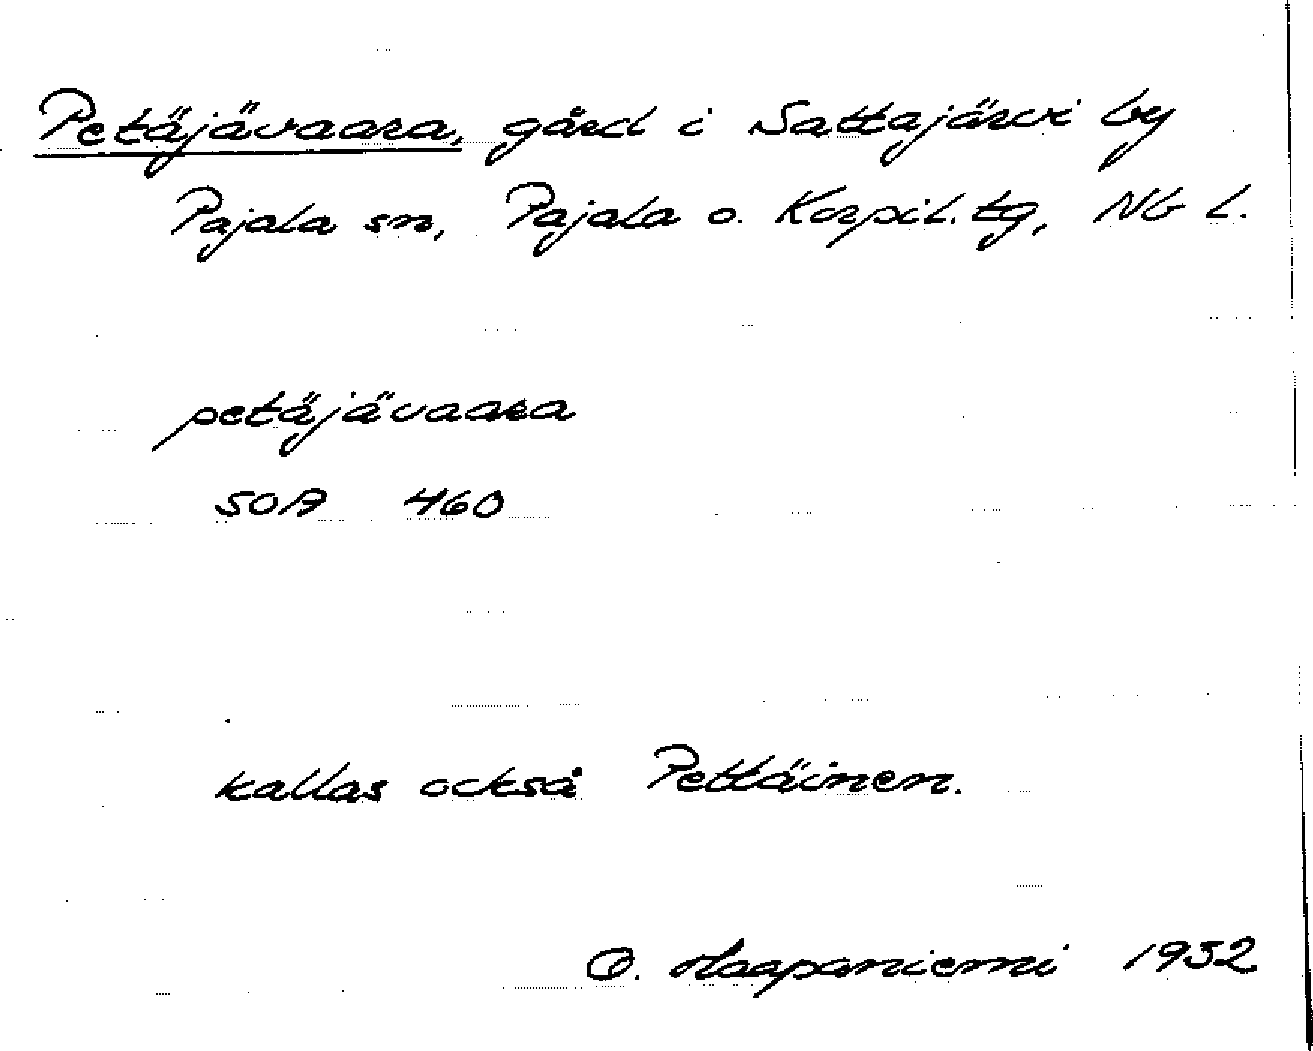 Petäjävaara, gård i Sattajärvi by
Pajala sn, Pajala o. Korpil. tg, NB L.
petäjävaara
SOA 460
kallas också Pettäinen.
O. Haapaniemi 1932